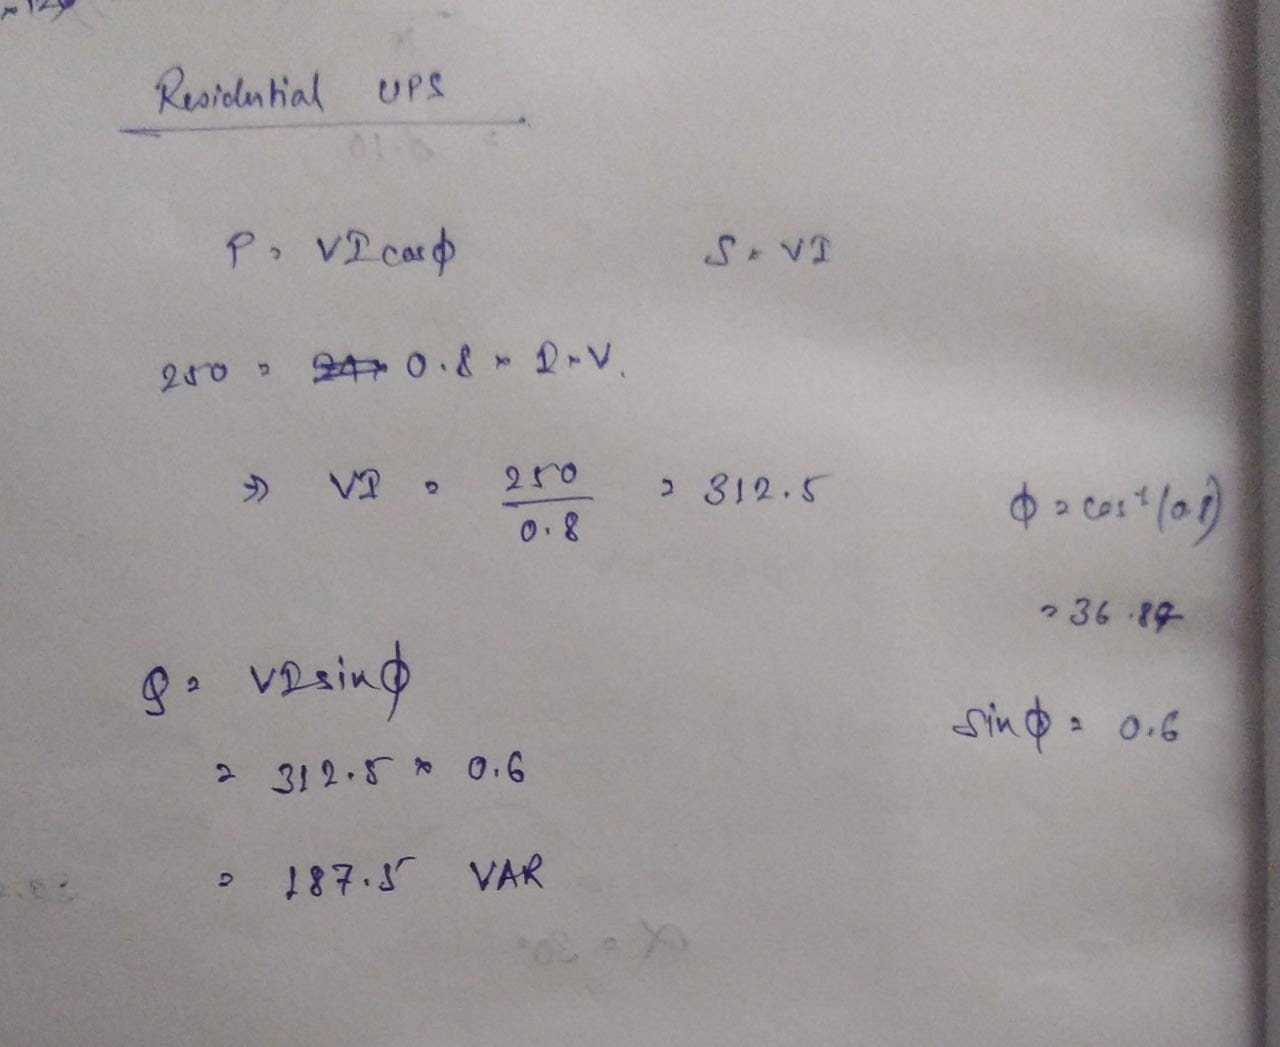 Residential UPS
P = VI cosϕ S = VI
250 = 0.8 × I × V.
⇒ VI = 250/0.8 = 312.5
ϕ = cos⁻¹(0.8)
= 36.87
Q = VI sinϕ
sinϕ = 0.6
= 312.5 × 0.6
= 187.5 VAR